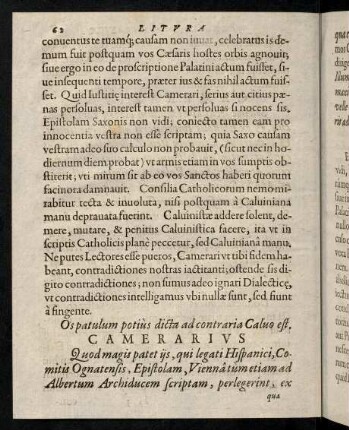 62 LITVRA
conuentus te tuamq́; causam non iuuat, celebratus is de-
mum fuit postquam vos Cæsaris hostes orbis agnouit;
siue ergo in eo de proscriptione Palatini actum fuisset, si-
ue insequenti tempore, præter ius & fas nihil actum fuis-
set. Quid Iustitiæ interest Camerari, serius aut citius pæ-
nas persoluas, interest tamen vt persoluas si nocens sis,
Epistolam Saxonis non vidi; coniecto tamen eam pro
innocentia vestra non esse scriptam; quia Saxo causam
vestram adeo suo calculo non probauit, (sicut nec in ho-
diernum diem probat) vt armis etiam in vos sumptis ob-
stiterit, vti mirum sit ab eo vos Sanctos haberi quorum
facinora damnauit. Consilia Catholicorum nemo mi-
rabitur tecta & inuoluta, nisi postquam à Caluiniana
manu deprauata fuerint. Caluinistæ addere solent, de-
mere, mutare, & penitus Caluinistica facere, ita vt in
scriptis Catholicis planè peccetur, sed Caluiniana manu.
Ne putes Lectores esse pueros, Camerari vt tibi fidem ha-
beant, contradictiones nostras iactitanti; ostende sis di-
gito contradictiones; non sumus adeo ignari Dialecticę,
vt contradictiones intelligamus vbi nullæ sunt, sed siunt
à fingente.
Os patulum potiùs dicta ad contraria Caluo est.
CAMERARIVS
Quod magis patet ijs, qui legati Hispanici, Co-
mitis Ognatensis, Epistolam, Viennâ tum etiam ad
Albertum Archiducem scriptam, perlegerint, ex
qua